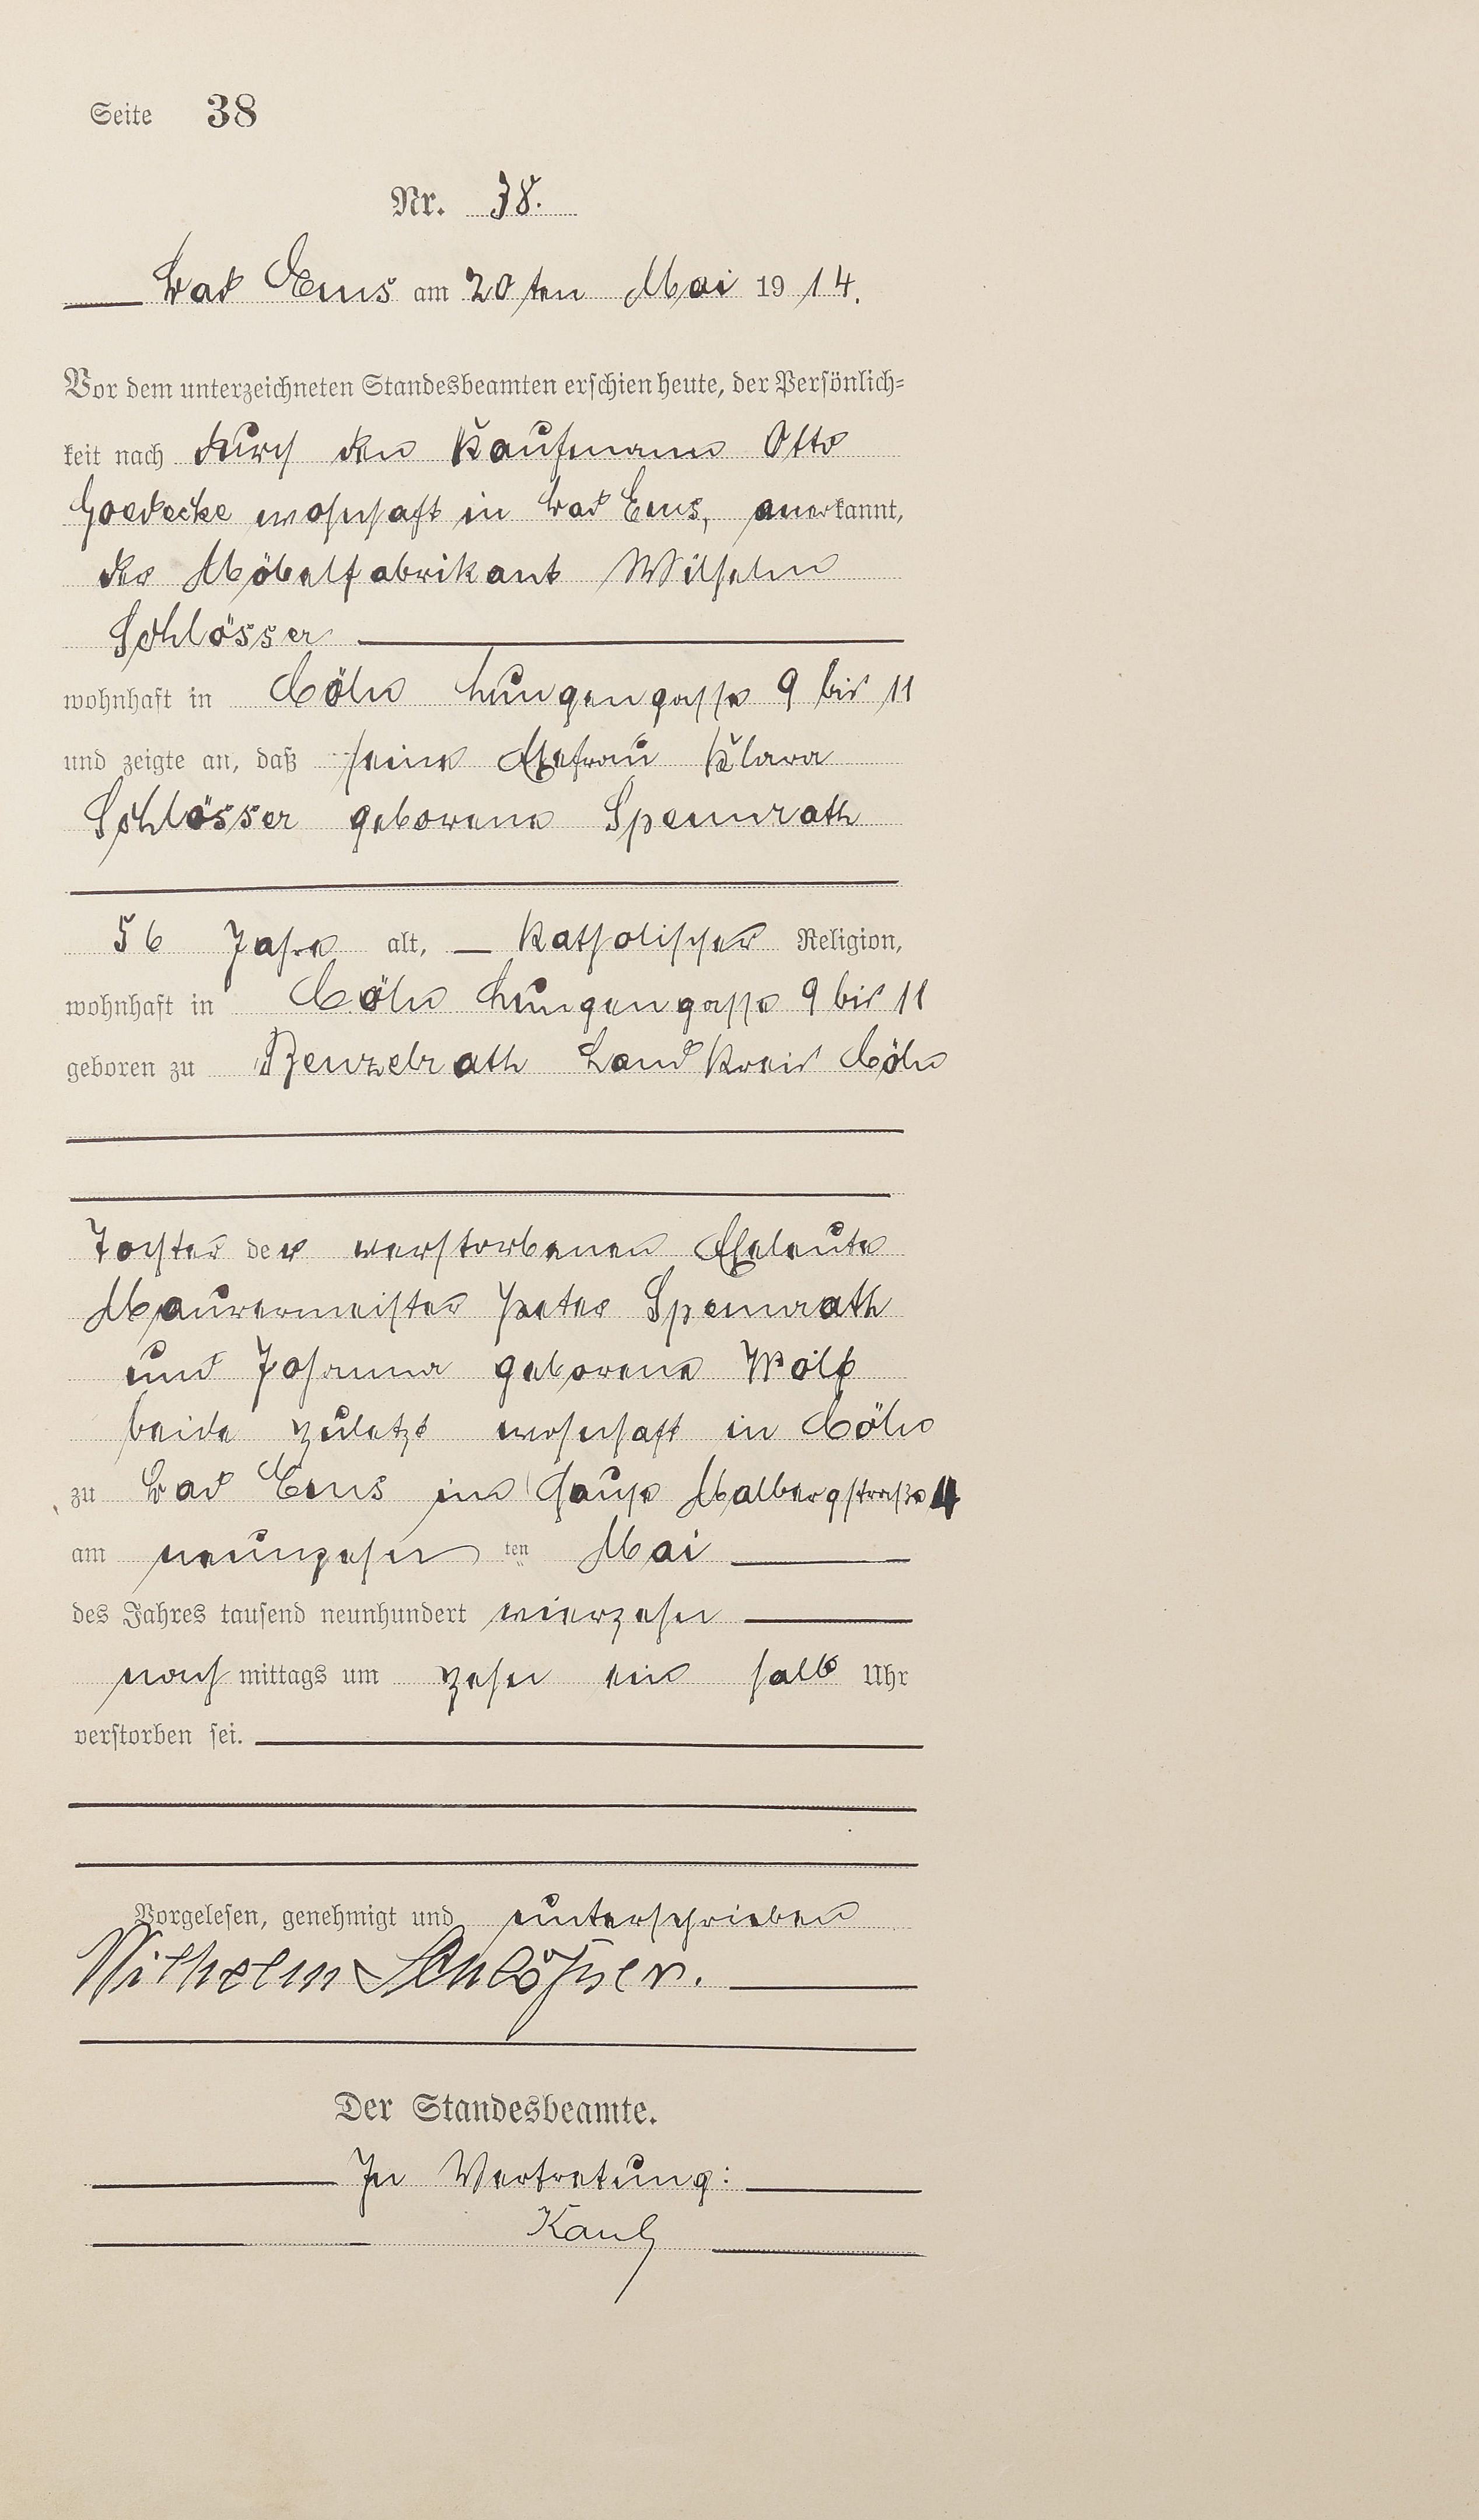 Seite 38
Nr. 38.
Bad Ems am 20ten Mai 1914.
Vor dem unterzeichneten Standesbeamten erschien heute, der Persönlich-
keit nach durch den Kaufmann Otto
Goedecke wohnhaft in Bad Ems, anerkannt,
der Möbelfabrikant Wilhelm
Schlösser
wohnhaft in Cöln Lungengasse 9 bis 11
und zeigte an, daß seine Ehefrau Klara
Schlösser geborene Spennrath
56 Jahre alt, katholischer Religion,
wohnhaft in Cöln Lungengasse 9 bis 11
geboren zu Benzelrath Landkreis Cöln
Tochter der verstorbenen Eheleute
Maurermeister Peter Spennrath
und Johanna geborene Wolf
beide zuletzt wohnhaft in Cöln
zu Bad Ems im Hause Malbergstraße 4
am neunzehnten Mai
des Jahres tausend neunhundert vierzehn
nachmittags um zehn ein halb Uhr
verstorben sei.
Vorgelesen, genehmigt und unterschrieben
Wilhelm Schlösser.
Der Standesbeamte.
In Vertretung:
Kaul